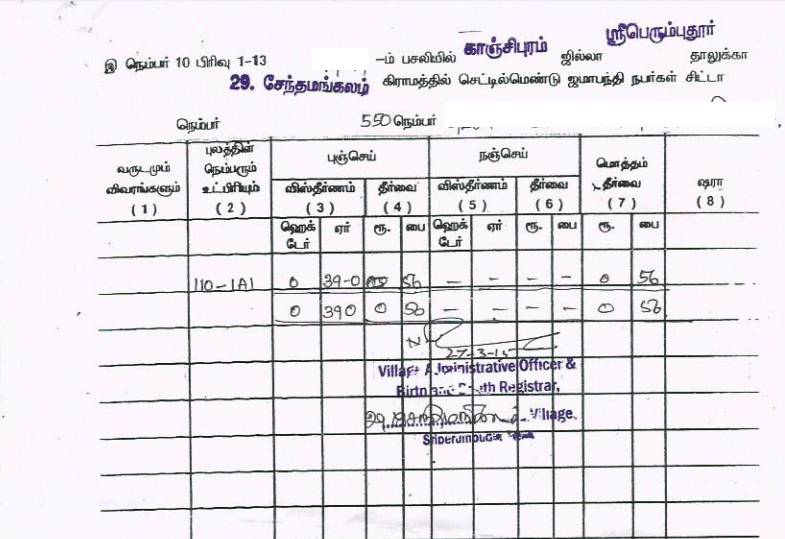 ஸ்ரீபெரும்புதூர்
இ நெம்பர் 10 பிரிவு 1-13 -ம் பசலியில் காஞ்சிபுரம் ஜில்லா தாலுக்கா
29. சேந்தமங்கலம் கிராமத்தில் செட்டில்மெண்டு ஜமாபந்தி நபர்கள் சிட்டா
நெம்பர் 550 நெம்பர்
வருடமும் விவரங்களும் (1)
புலத்தின் நெம்பரும் உட்பிரியும் (2)
புஞ்செய் நஞ்செய்
விஸ்தீர்ணம் (3) தீர்வை (4) விஸ்தீர்ணம் (5) தீர்வை (6)
மொத்தம் தீர்வை (7)
ஷரா (8)
ஹெக்டேர் ஏர் ரூ. பை ஹெக்டேர் ஏர் ரூ. பை ரூ. பை
110-1A1 0 39-0 56 — - - - 0 56
0 390 0 56 — - - - 0 56
27-3-15
Village Administrative Officer &
Birth and Death Registrar,
Village,
Sriperumbudur